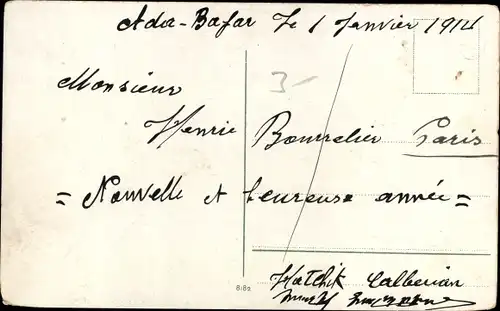 Ada-Bazar le 1 Janvier 1914
3-
Monsieur
Henrie Bourrelier Paris
= Nouvelle et heureuse année =
Hatchik Calberian
8182